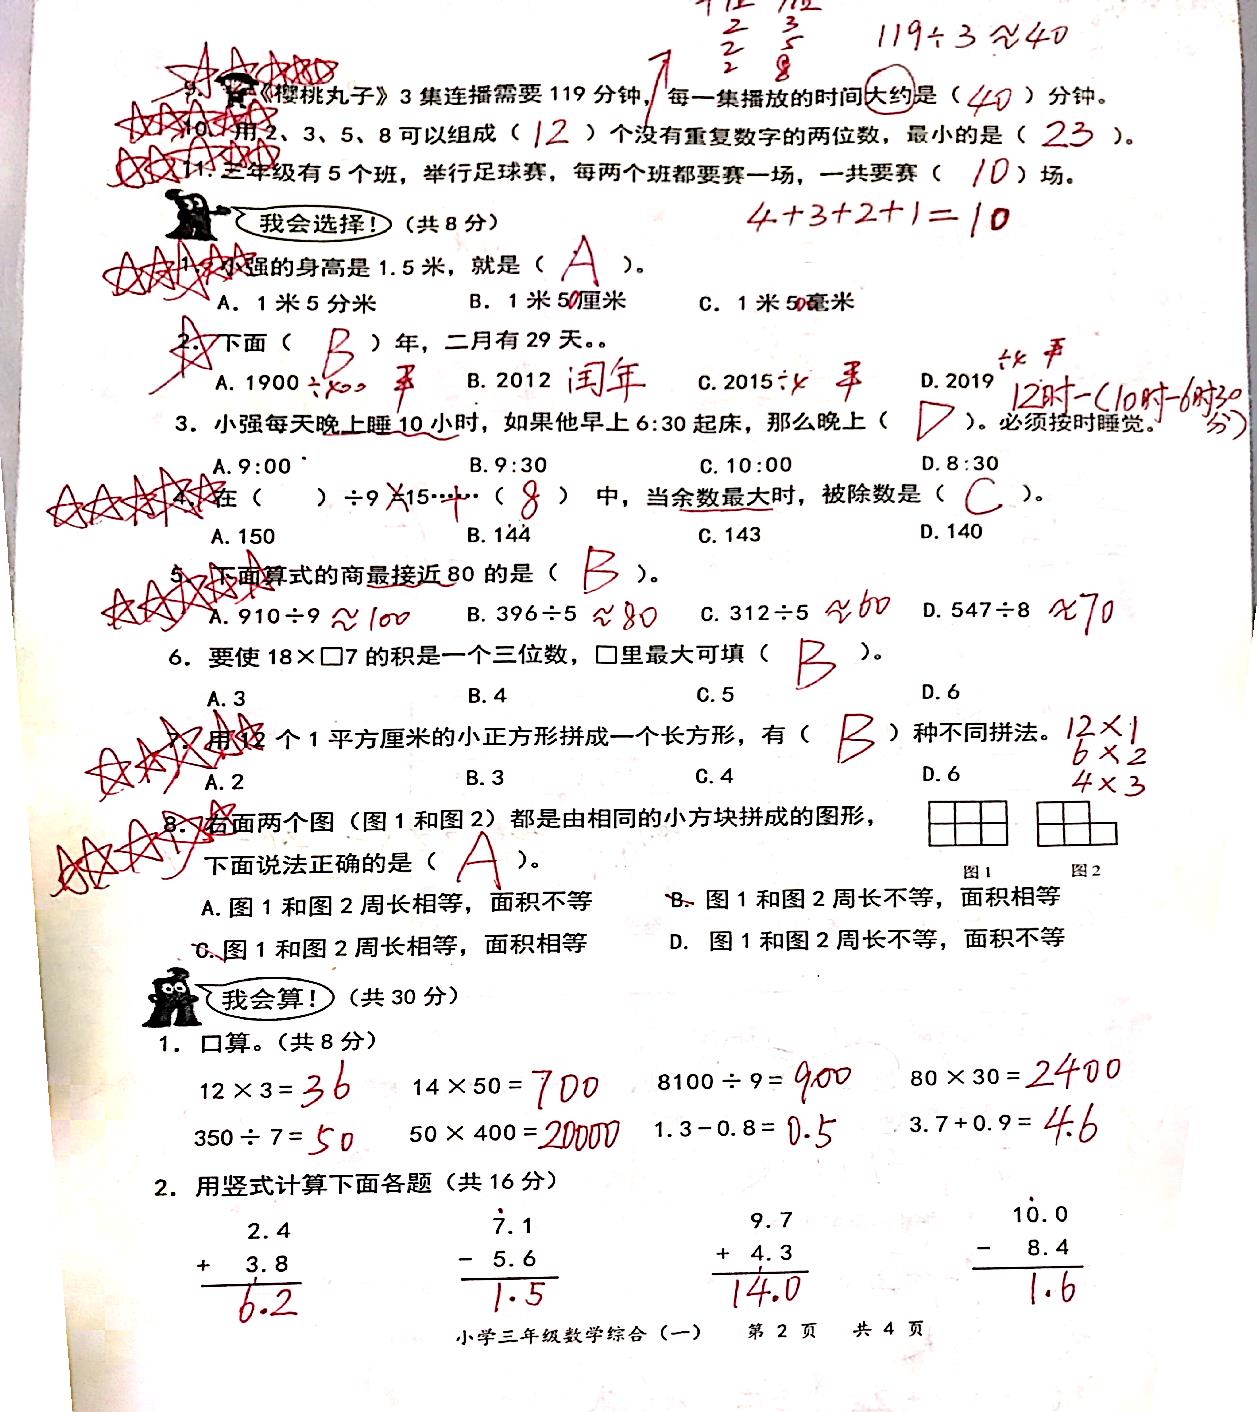 2 3
2 5
2 8
119÷3≈40
9. 《樱桃丸子》3 集连播需要 119 分钟，每一集播放的时间大约是（ 40 ）分钟。
10. 用 2、3、5、8 可以组成（ 12 ）个没有重复数字的两位数，最小的是（ 23 ）。
11. 三年级有 5 个班，举行足球赛，每两个班都要赛一场，一共要赛（ 10 ）场。
4+3+2+1=10
我会选择！（共 8 分）
1. 小强的身高是 1.5 米，就是（ A ）。
A. 1 米 5 分米 B. 1 米 50厘米 C. 1 米 50毫米
2. 下面（ B ）年，二月有 29 天。。
A. 1900 ÷400 平 B. 2012 闰年 C. 2015 ÷4 平 D. 2019 ÷4 平
12时-(10时-6时30分)
3. 小强每天晚上睡 10 小时，如果他早上 6:30 起床，那么晚上（ D ）。必须按时睡觉。
A. 9:00 B. 9:30 C. 10:00 D. 8:30
4. 在（ ）÷9 = 15……（ 8 ） 中，当余数最大时，被除数是（ C ）。
× +
A. 150 B. 144 C. 143 D. 140
5. 下面算式的商最接近 80 的是（ B ）。
A. 910÷9 ≈100 B. 396÷5 ≈80 C. 312÷5 ≈60 D. 547÷8 ≈70
6. 要使 18×□7 的积是一个三位数，□里最大可填（ B ）。
A. 3 B. 4 C. 5 D. 6
7. 用 12 个 1 平方厘米的小正方形拼成一个长方形，有（ B ）种不同拼法。 12×1
6×2
A. 2 B. 3 C. 4 D. 6 4×3
8. 右面两个图（图 1 和图 2）都是由相同的小方块拼成的图形，
下面说法正确的是（ A ）。
图 1 图 2
A. 图 1 和图 2 周长相等，面积不等 B. 图 1 和图 2 周长不等，面积相等
C. 图 1 和图 2 周长相等，面积相等 D. 图 1 和图 2 周长不等，面积不等
我会算！（共 30 分）
1. 口算。（共 8 分）
12 × 3 = 36 14 × 50 = 700 8100 ÷ 9 = 900 80 × 30 = 2400
350 ÷ 7 = 50 50 × 400 = 20000 1.3 - 0.8 = 0.5 3.7 + 0.9 = 4.6
2. 用竖式计算下面各题（共 16 分）
2.4 7.1 9.7 10.0
+ 3.8 - 5.6 + 4.3 - 8.4
6.2 1.5 14.0 1.6
小学三年级数学综合（一） 第 2 页 共 4 页